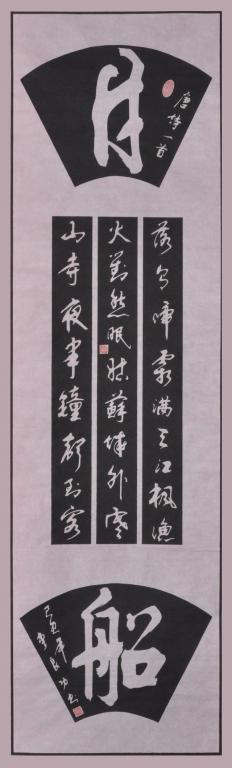 月
唐詩一首
落乌啼霜满天江枫渔
火對愁眠姑蘇城外寒
山寺夜半鐘聲到客
船
己丑年